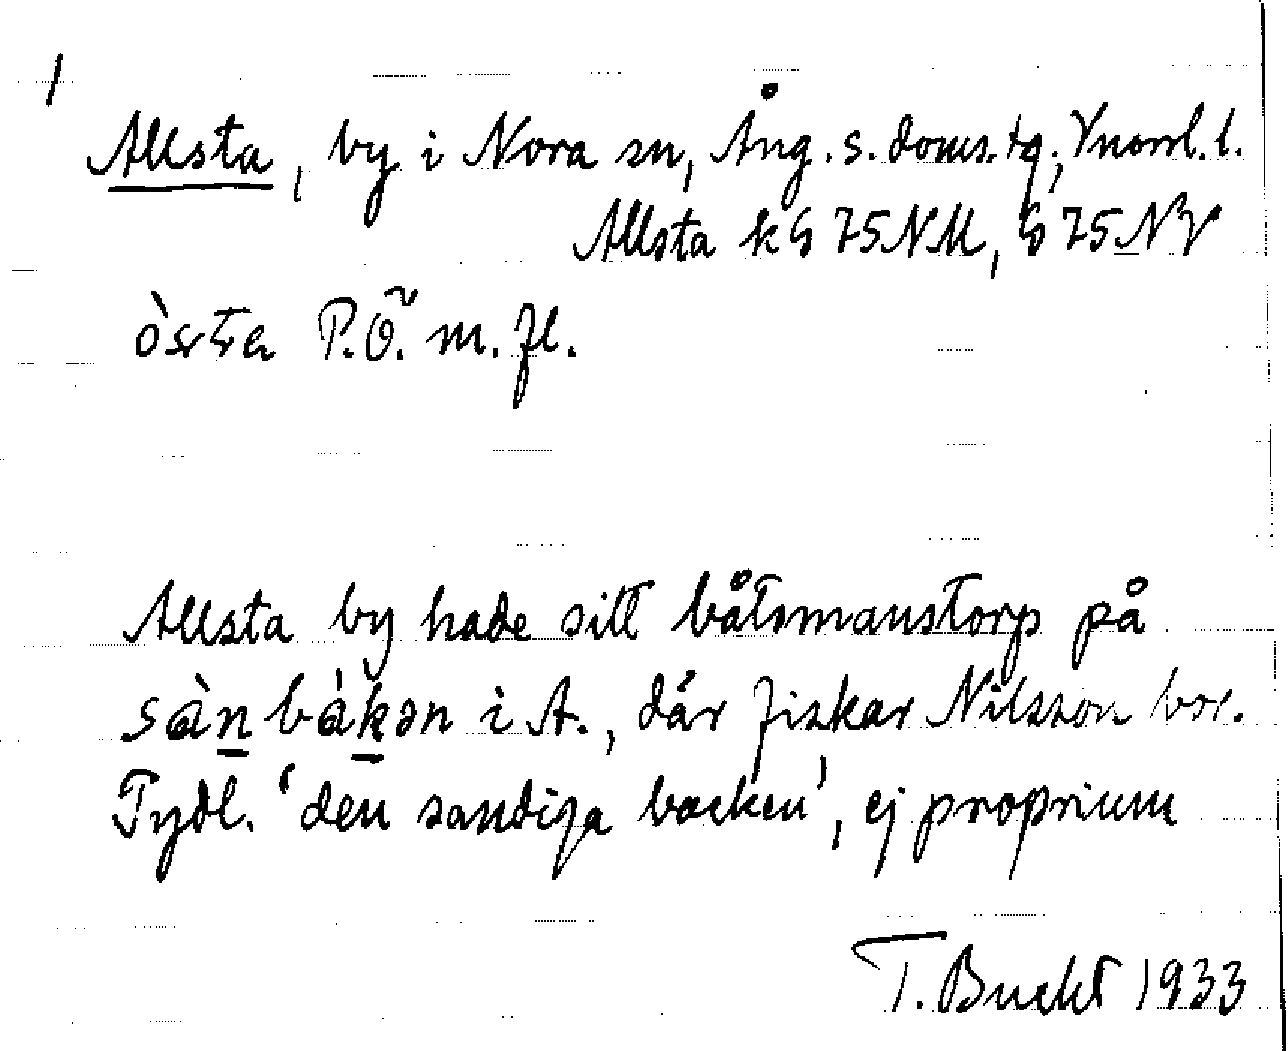 1
Allsta, by i Nora sn, Ång. s. doms. tg., Vnorrl. l.
Allsta k G 75 NM, G 75 NV
òsta P.Ö. m. fl.
Allsta by hade sitt båtsmanstorp på
sàn bákən i A., där fiskar Nilsson bor.
Tydl. 'den sandiga backen', ej proprium
T. Bucht 1933